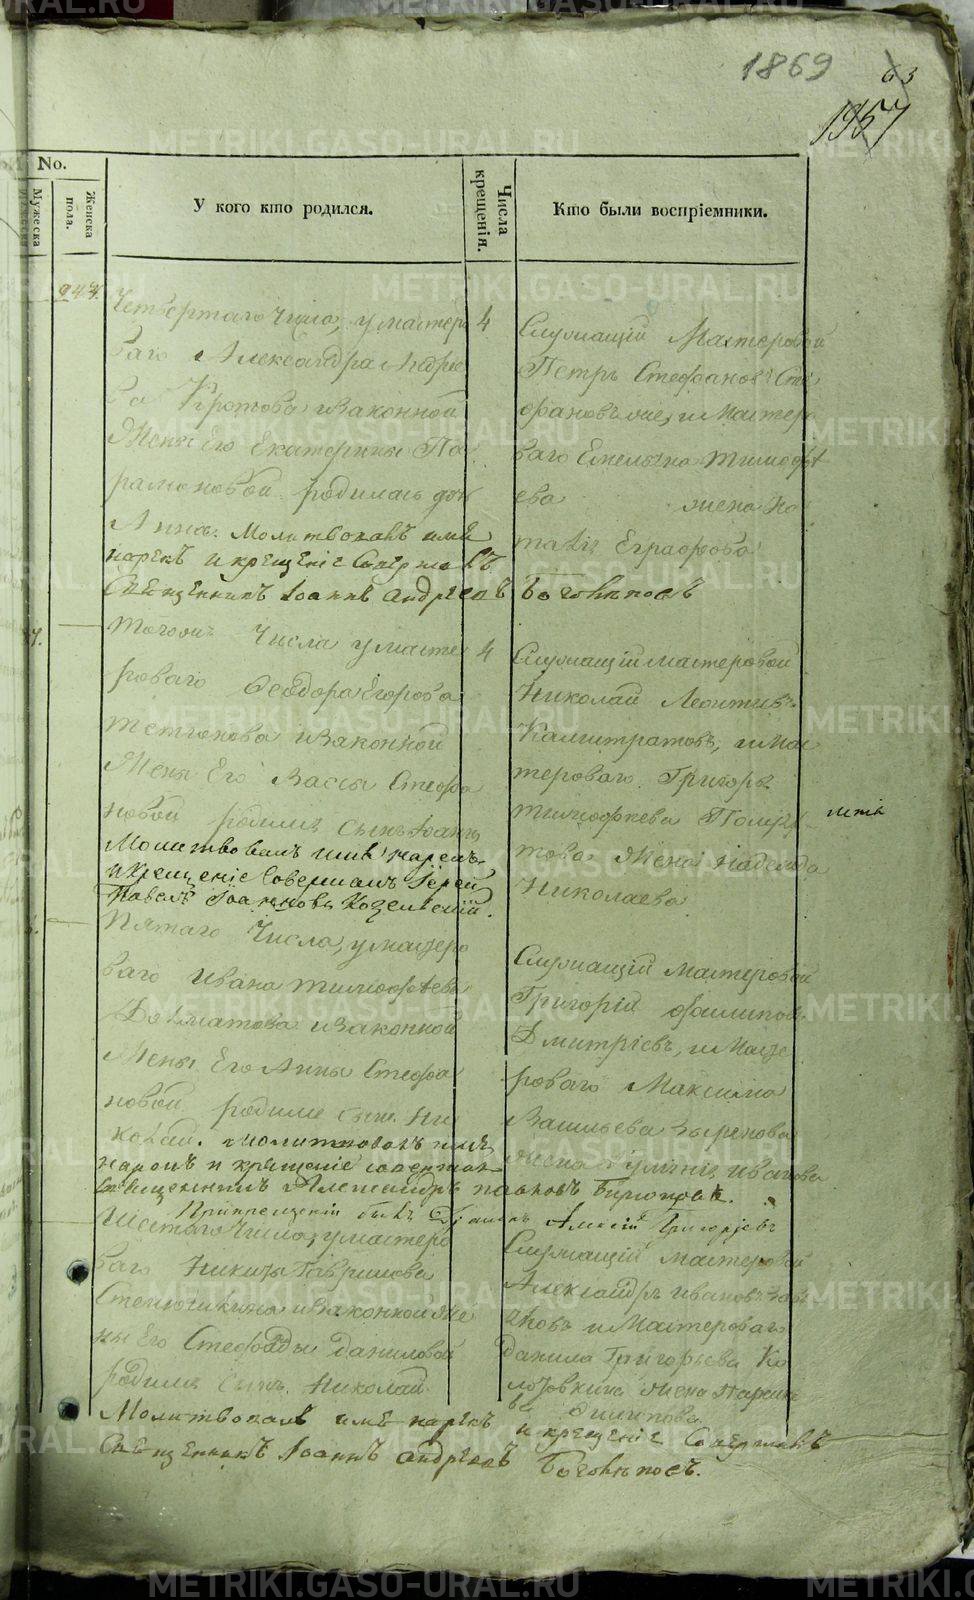 1869
63
1957
No.
Мужеска
Женска
пола.
У кого кто родился.
Числа
крещенія.
Кто были воспріемники.
944.
Четвертаго Числа, у мастеро
4
ваго Александра Андрее
ва Кротова и законной
Жены Его Екатерины Па
рамоновой родилась дочь
Анна. Молитвовалъ имя
нарекъ и крещеніе Совершалъ
Священникъ Іоаннъ Андреевъ Боголѣповъ
Служащій Мастеровой
Петръ Стефановъ
и Мастеро
ваго Емельяна Тимофѣ
ева жена
Тогожъ Числа у масте
4
роваго Феодора Егорова
и законной
Жены Его Вассы Стефа
новой родился сынъ Іоаннъ
Молитвовалъ имя нарекъ
и Крещеніе Совершалъ Іерей
Павелъ Іоанновъ Козельскій.
Служащій мастеровой
Николай Леонтьевъ
Калистратовъ, и Мас
тероваго Григорья
Тимофеева
Жена Надежда
Николаева
Пятаго Числа, у мастеро
ваго Ивана Тимофѣева
Долматова и законной
Жены Его Анны Стефа
новой родился сынъ Ни
колай. Молитвовалъ имя
нарекъ и крещеніе совершалъ
священникъ Александръ Павловъ Бирюковъ.
При крещеніи былъ Дьячекъ Алексій Григорьевъ
Служащій мастеровой
Григорій Филипов
Дмитріевъ, и Масте
роваго Максима
Васильева Зырянова
жена Иванова
Шестаго Числа, у мастеро
ваго Никиты Гаврилова
Стенюшкина и законной Же
ны Его Стефаниды Даниловой
родился Сынъ Николай
Молитвовалъ имя нарекъ и крещеніе Совершалъ
Священникъ Іоаннъ Андреевъ Боголѣповъ.
Служащій мастеровой
Александръ Ивановъ
и Мастероваго
Данила Григорьева Ко
жена
Филипова